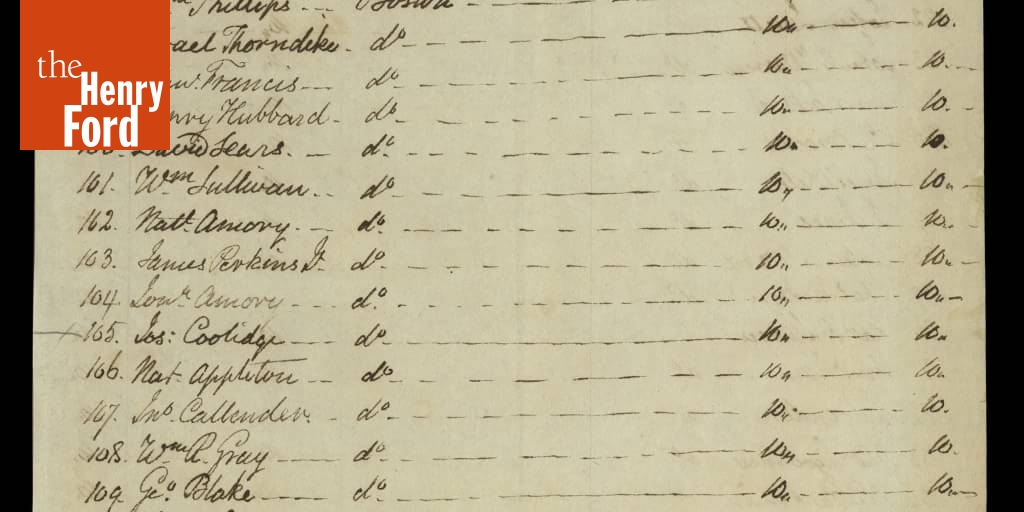 the Henry Ford
Phillips - - - Boston
ael Thorndike - do 10 10.
w. Francis do 10 10.
nry Hubbard - do 10 10.
David Sears. - do 10 10.
101. Wm Sullivan. do 10 10
102. Natl. Amory. do 10 10
103. James Perkins Jr. do 10 10
104. Jonn. Amory do 10 10
105. Jos: Coolidge do 10 10
106. Nat Appleton do 10 10
107. Jno. Callender. do 10 10.
108. Wm R. Gray do 10 10.
109. Geo. Blake do 10 10